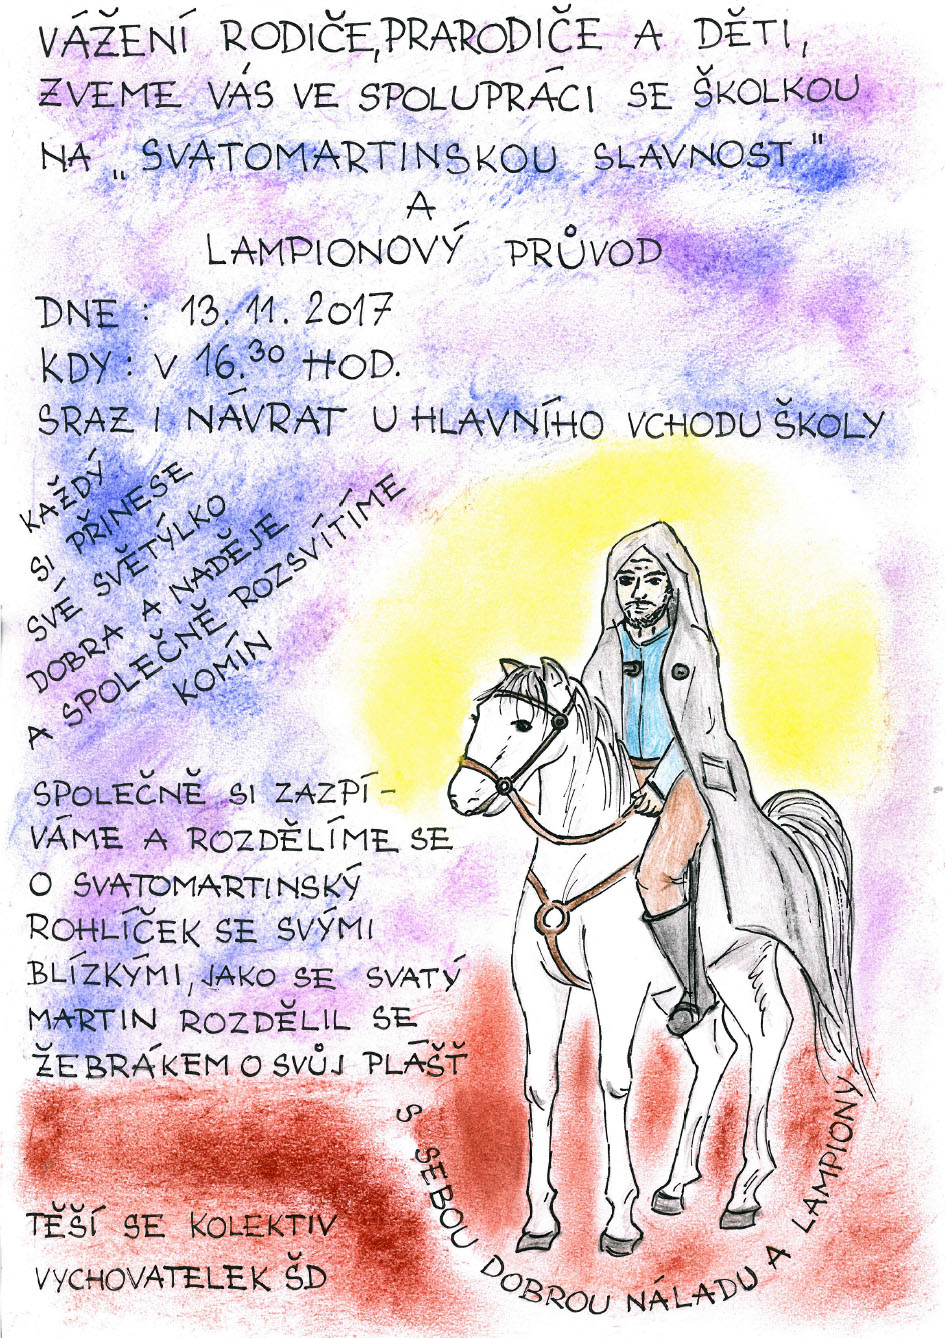 VÁŽENÍ RODIČE, PRARODIČE A DĚTI,
ZVEME VÁS VE SPOLUPRÁCI SE ŠKOLKOU
NA „SVATOMARTINSKOU SLAVNOST"
A
LAMPIONOVÝ PRŮVOD
DNE : 13. 11. 2017
KDY : V 16.30 HOD.
SRAZ I NÁVRAT U HLAVNÍHO VCHODU ŠKOLY
KAŽDÝ
SI PŘINESE
SVÉ SVĚTÝLKO
DOBRA A NADĚJE
A SPOLEČNĚ ROZSVÍTÍME
KOMÍN
SPOLEČNĚ SI ZAZPÍ-
VÁME A ROZDĚLÍME SE
O SVATOMARTINSKÝ
ROHLÍČEK SE SVÝMI
BLÍZKÝMI, JAKO SE SVATÝ
MARTIN ROZDĚLIL SE
ŽEBRÁKEM O SVŮJ PLÁŠŤ
S SEBOU DOBROU NÁLADU A LAMPIONY
TĚŠÍ SE KOLEKTIV
VYCHOVATELEK ŠD